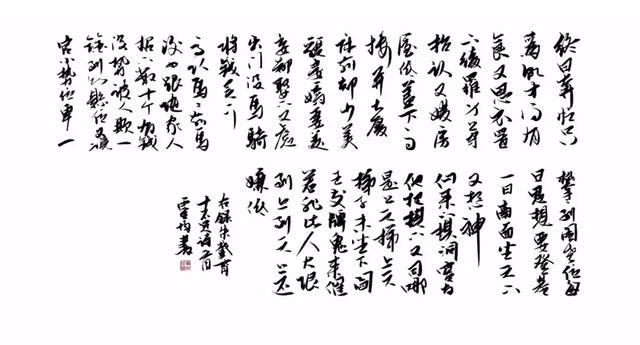 终日奔忙只
为饥才得有
食又思衣置
下绫罗身穿
抬头又嫌房
屋低盖下高
楼并大厦
床前却少美
貌妻娇妻美
妾都娶下又虑
出门没马骑
将钱买下
高头马马
没跟随家人
招下数十个有钱
没势被人欺一
铨到知县位又嫌
官小势位卑一
攀到阁老位每
日思想要登基
一日南面坐天下
又想神
仙来下棋洞宾与
他把棋下又问哪
是上天梯上天
梯子未坐下阎
王发牌鬼来催
若非此人大限
到上到天上还
嫌低
右录朱载堉
十不足诗
书